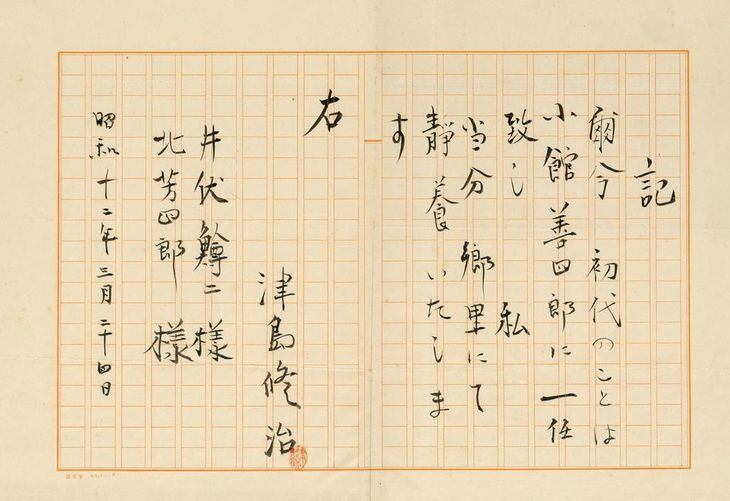 記
爾今 初代のことは
小館善四郎に一任
致し 私
当分 郷里にて
静養いたしま
す
右
津島修治
井伏鱒二様
北芳四郎 様
昭和十二年三月二十四日